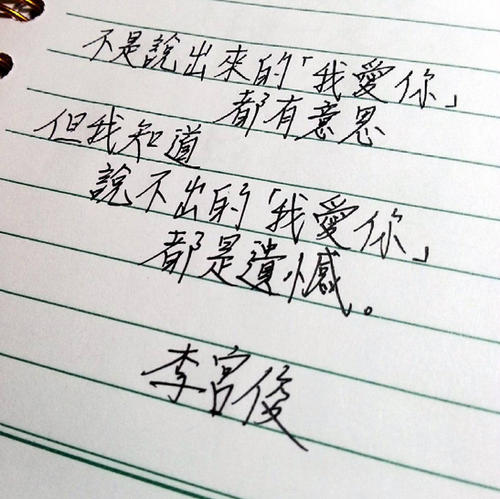 不是說出來的「我愛你」
都有意思
但我知道
說不出的「我愛你」
都是遺憾。
李宮俊